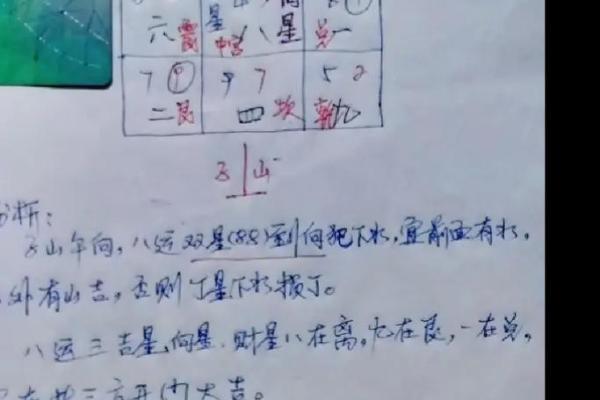 星 向
六 震 中宫 八 星 兑 一
7 9 9 7 5 2
二 艮 四 坎 乾 九
子 山
分析:
子山午向,八运双星(88)到向犯下水,宜前面有水,
外有山吉,否则丁星下水损丁。
八运三吉星,向星,财星八在离,九在艮,一在兑,
在此三方开门大吉。